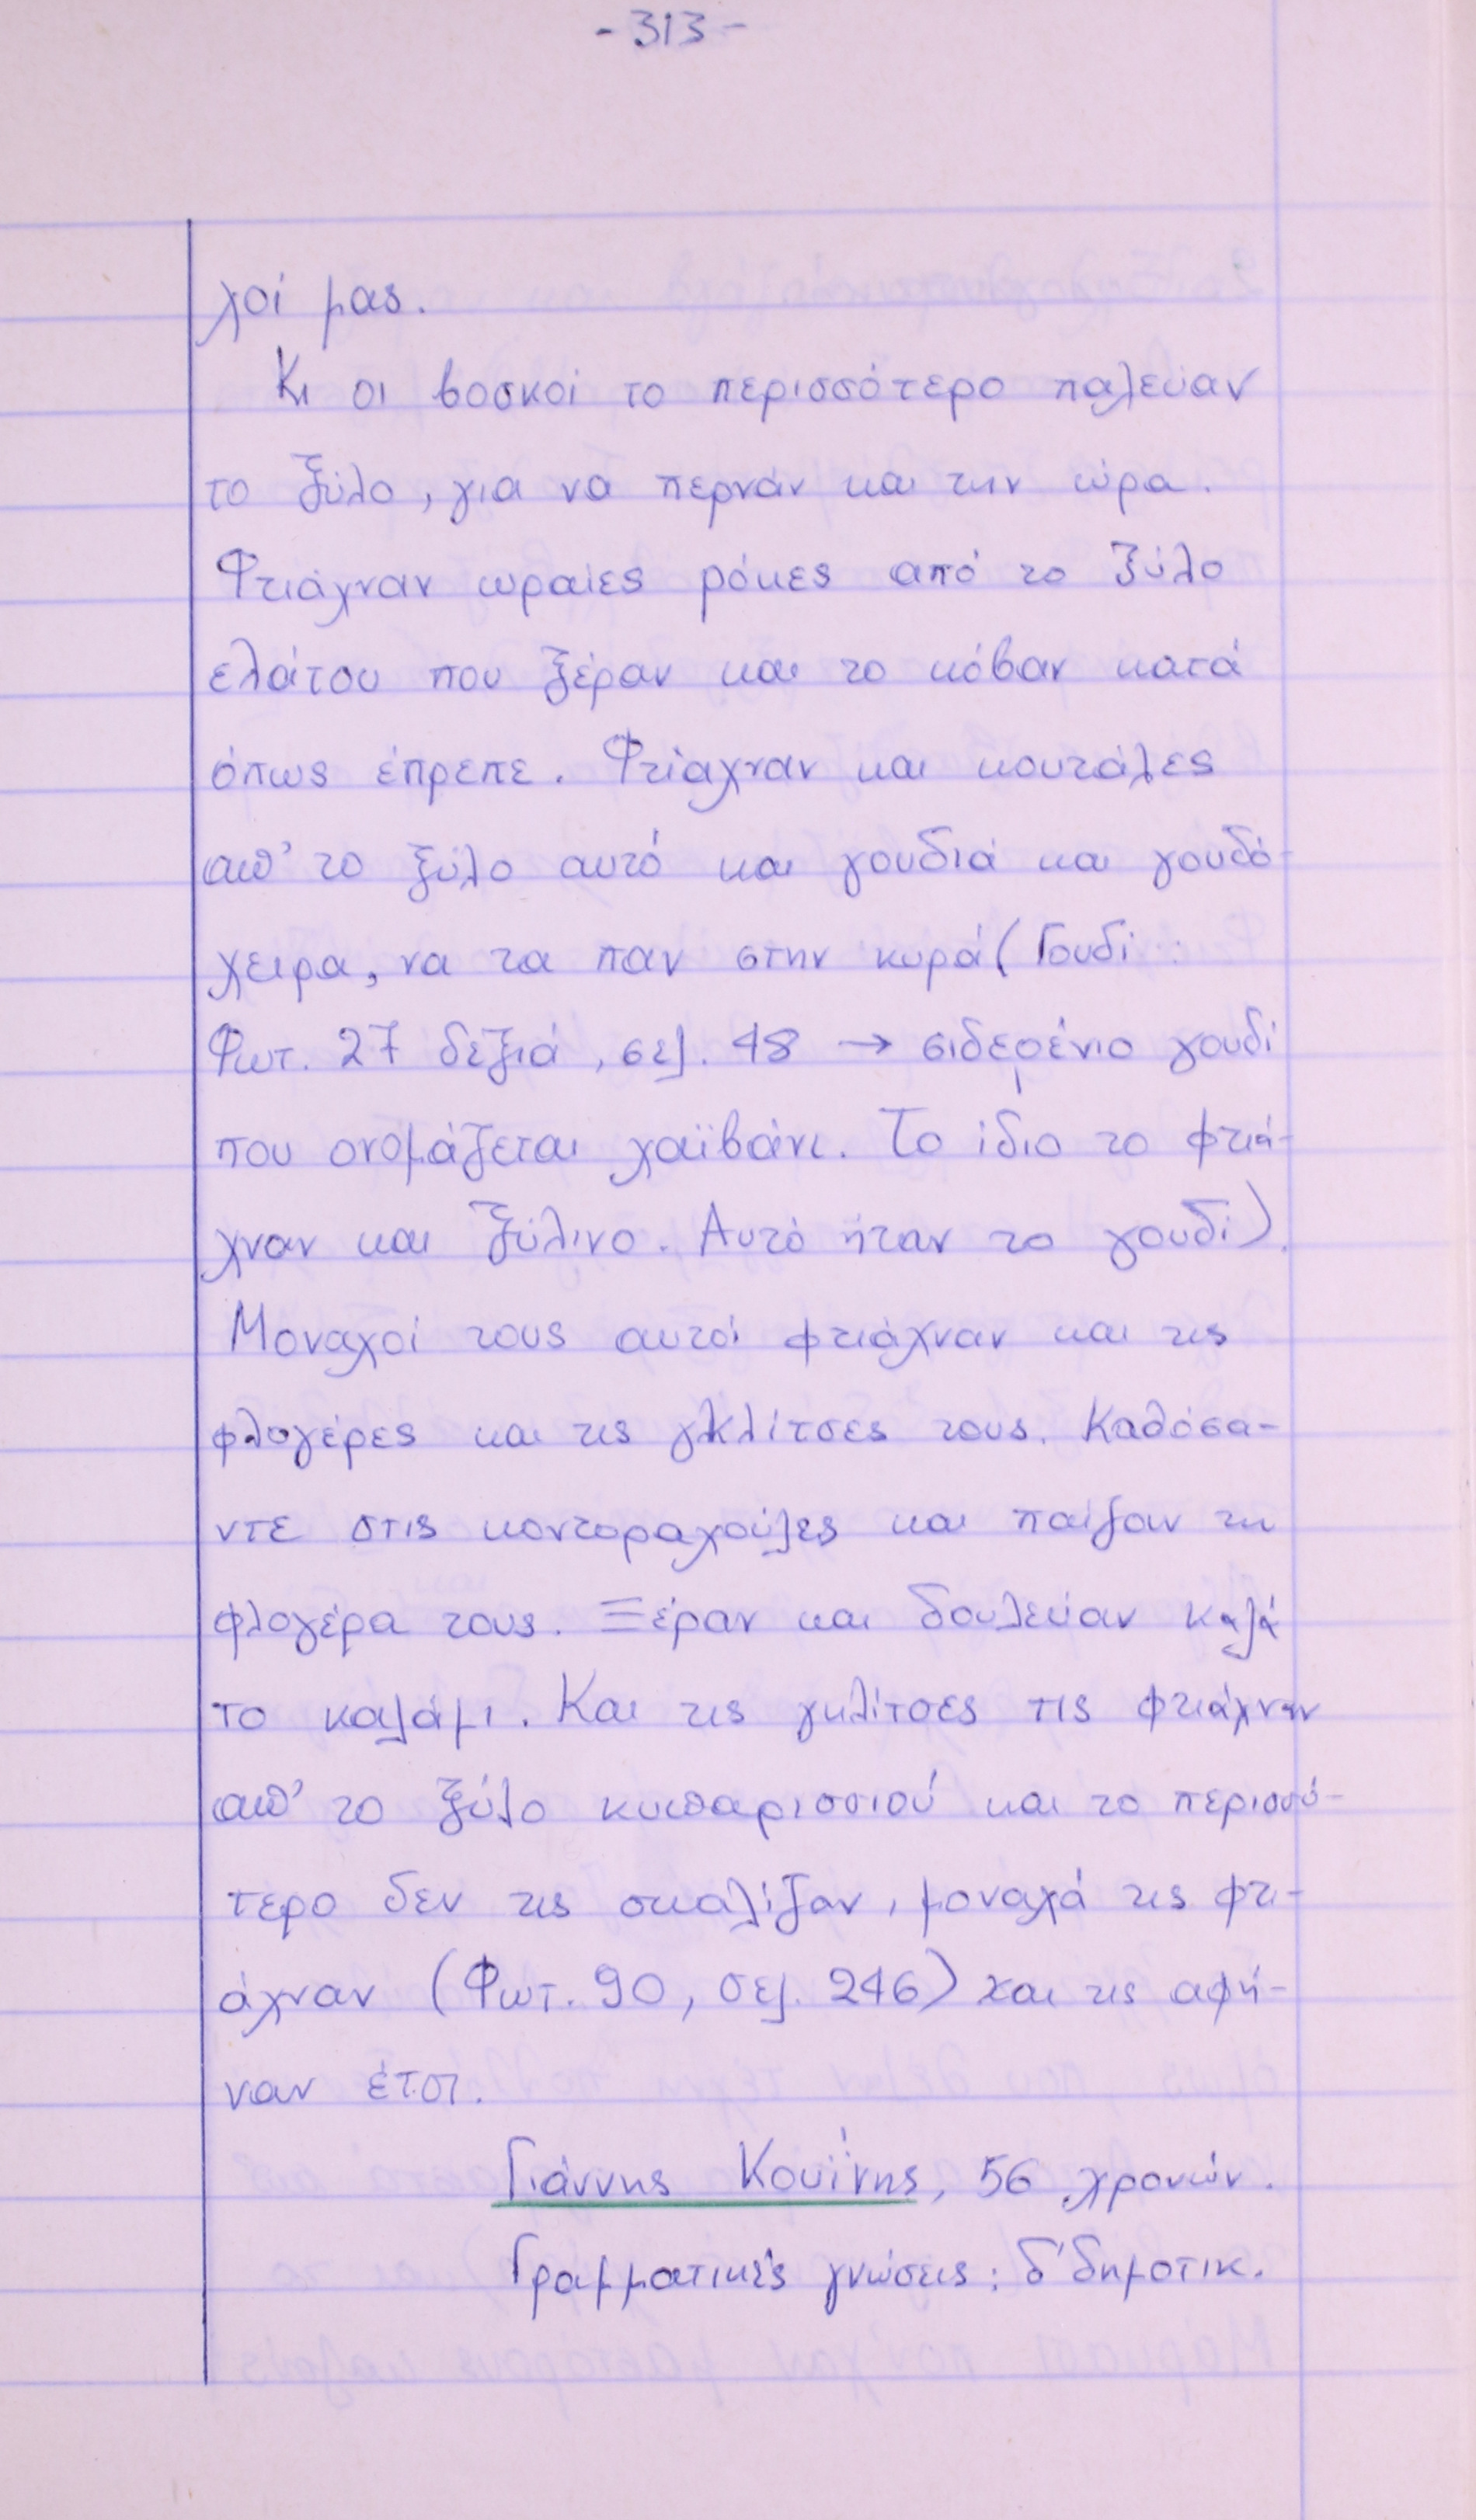 - 313 -
χοί μας.
Κι οι βοσκοί το περισσότερο παλεύαν
το ξύλο, για να περνάν και την ώρα.
Φτιάχναν ωραίες ρόκες από το ξύλο
ελάτου που ξέραν και το κόβαν κατά
όπως έπρεπε. Φτίαχναν και κουτάλες
απ' το ξύλο αυτό και γουδιά και γουδό-
χειρα, να τα παν στην κυρά (Γουδί:
Φωτ. 27 δεξιά, σελ. 48 → σιδερένιο γουδί
που ονομάζεται χαϊβάνι. Το ίδιο το φτιά-
χναν και ξύλινο. Αυτό ήταν το γουδί).
Μοναχοί τους αυτοί φτιάχναν και τις
φλογέρες και τις γκλίτσες τους. Καθόσα-
ντε στις κοντοραχούλες και παίζαν τη
φλογέρα τους. Ξέραν και δουλεύαν καλά
το καλάμι. Και τις γκλίτσες τις φτιάχναν
απ' το ξύλο κυπαρισσιού και το περισσό-
τερο δεν τις σκαλίζαν, μοναχά τις φτι-
άχναν (Φωτ. 90, σελ. 246) και τις αφή-
ναν έτσι.
Γιάννης Κουΐνης, 56 χρονών.
Γραμματικές γνώσεις: δ' δημοτικ.